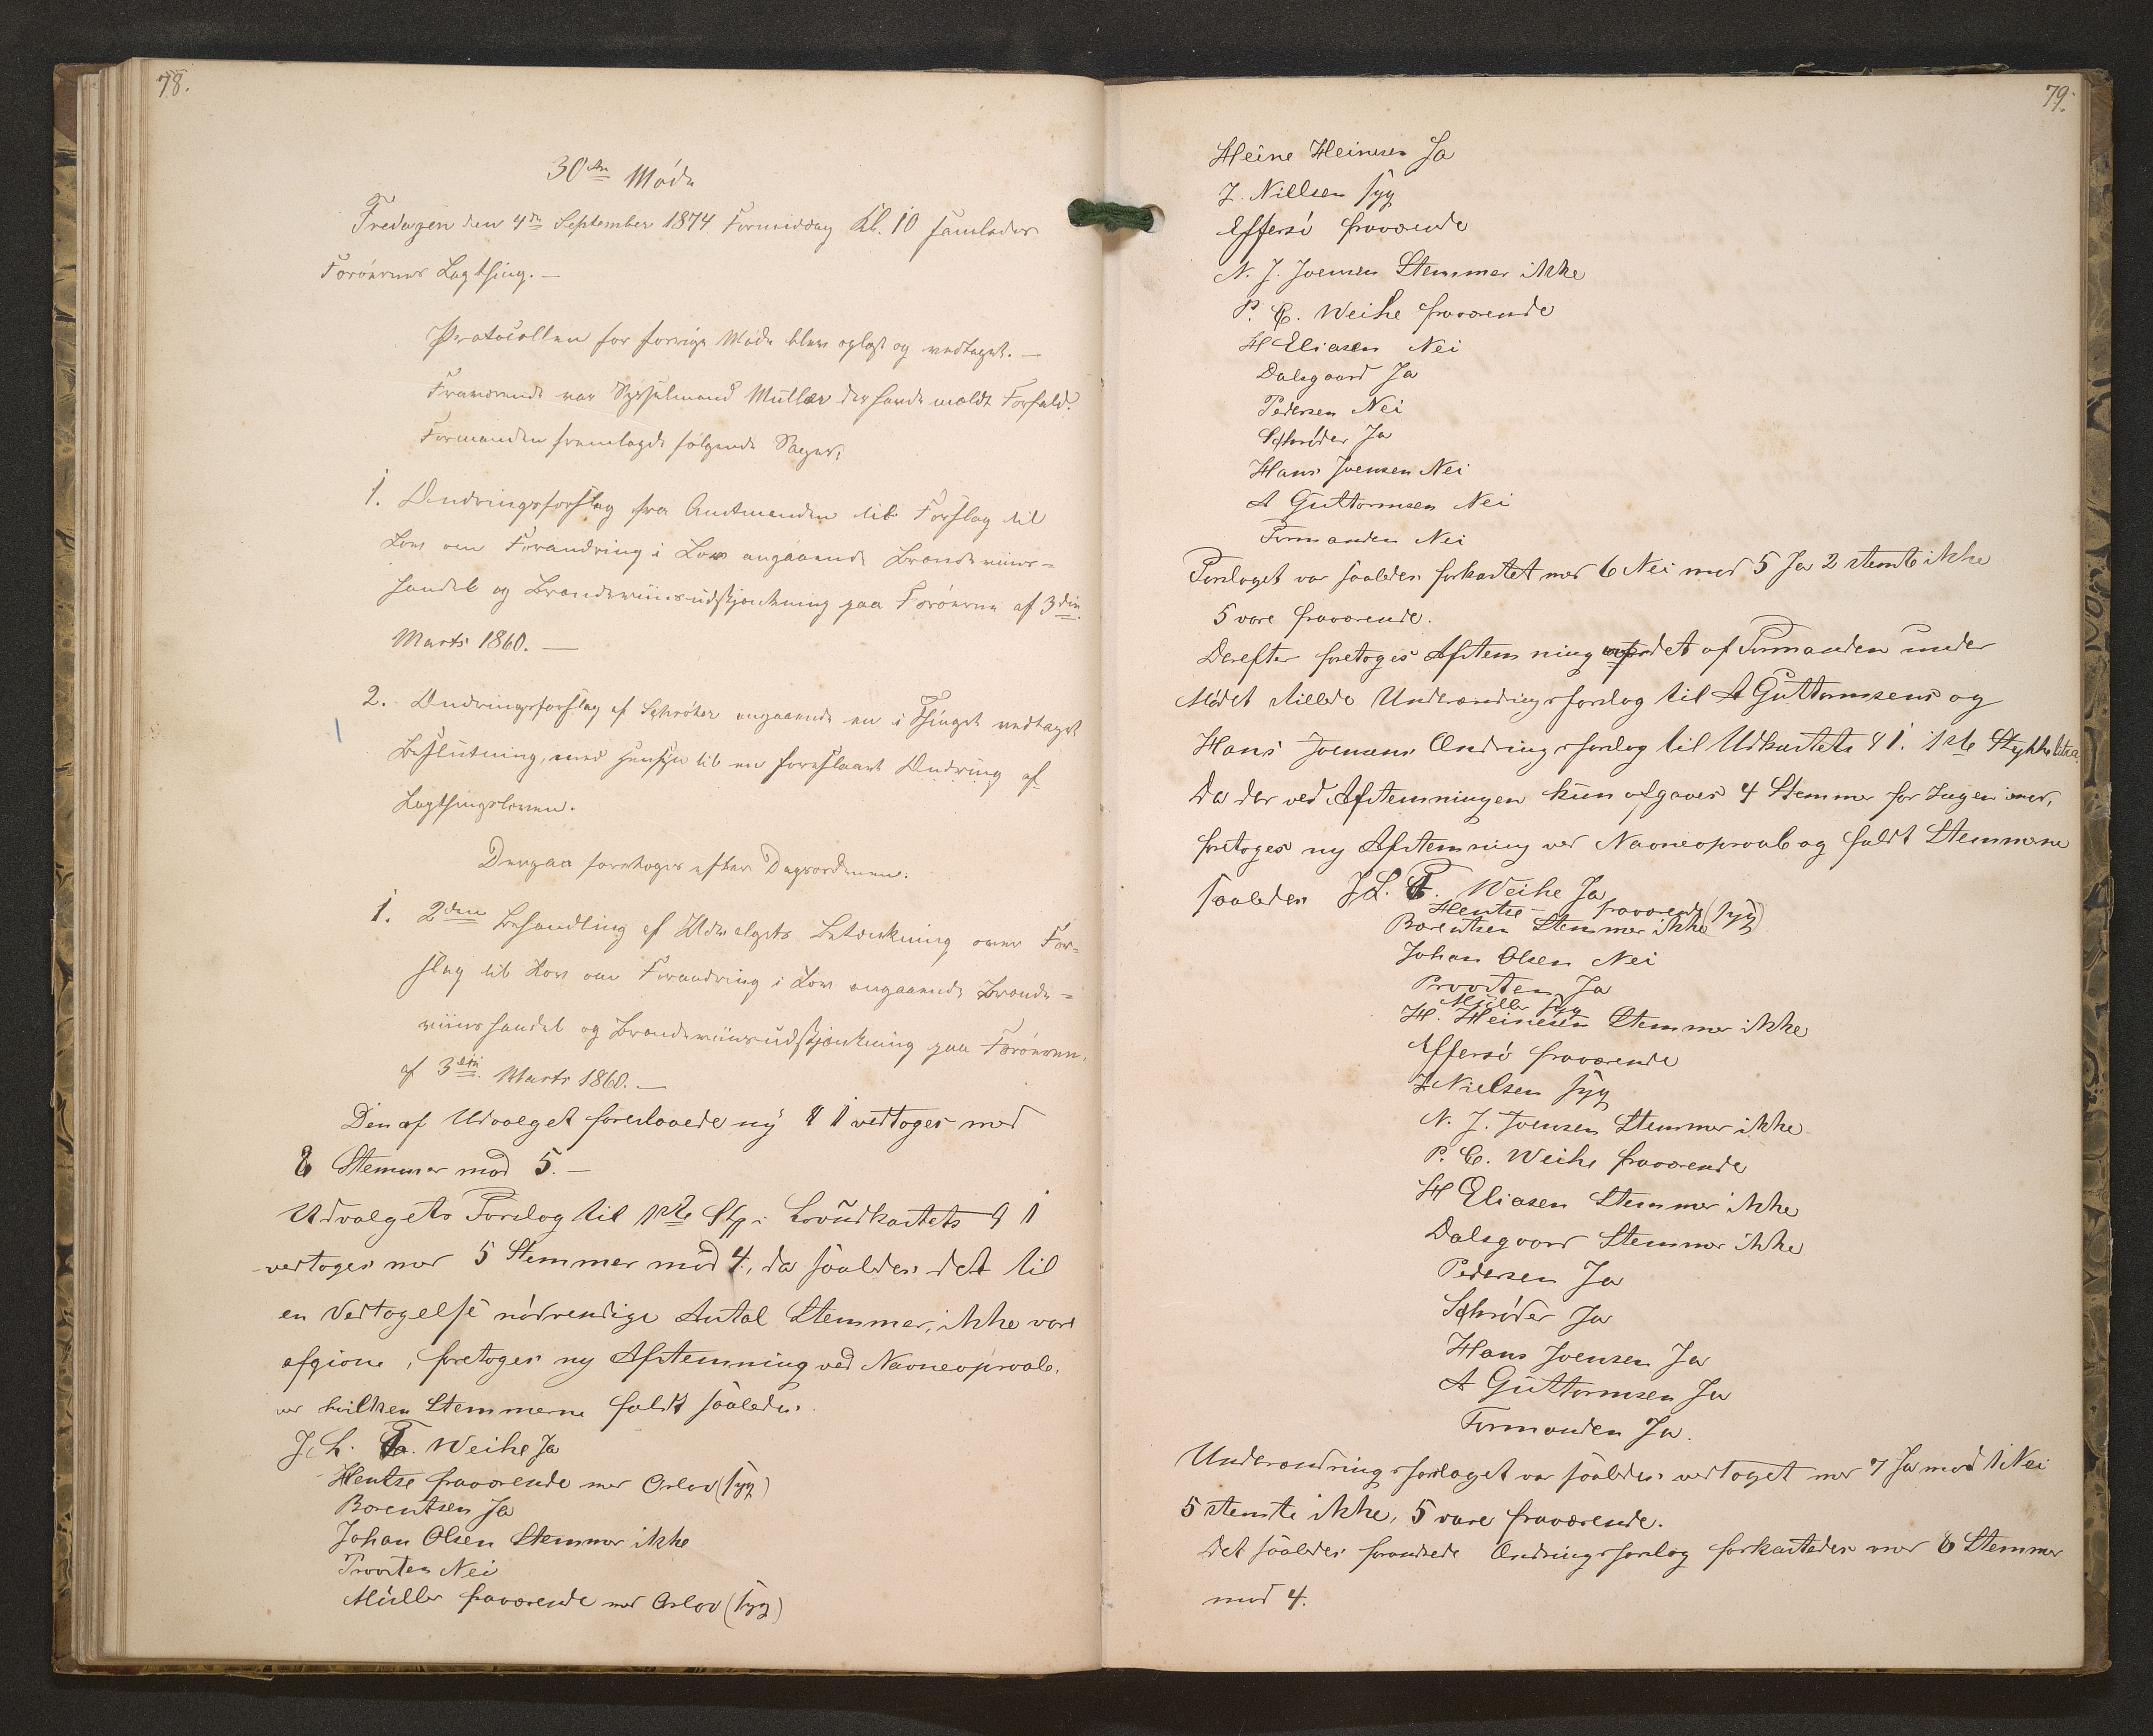 78.
30te Møde
Fredagen den 4de September 1874 Formiddag Kl. 10 samledes
Færøernes Lagthing. —
Protocollen for forrige Møde blev oplæst og vedtaget. —
Fraværende var Sysselmand Müller der havde meldt Forfald.
Formanden fremlagde følgende Sager:
1. Ændringsforslag fra Amtmanden til Forslag til
Lov om Forandring i Lov angaaende Brændeviins=
handel og Brændeviinsudskjænkning paa Færøerne af 3die
Marts 1860. —
2. Ændringsforslag af Schrøter angaaende en i Thinget vedtaget
Beslutning, med Hensyn til en foreslaaet Ændring af
Lagthingsloven.
Derpaa foretoges efter Dagsordenen:
1. 2den Behandling af Udvalgets Betænkning over For=
slag til Lov om Forandring i Lov angaaende Brænde=
viinshandel og Brændeviinsudskjænkning paa Færøerne
af 3die Marts 1860. —
Den af Udvalget foreslaaede ny § 1 vedtoges med
8 Stemmer mod 5. —
Udvalgets Forslag til 1ste St. i Lovudkastets § 1
vedtoges med 5 Stemmer mod 4, da saaledes det til
en Vedtagelse nødvendige Antal Stemmer, ikke vare
afgivne, foretoges ny Afstemning ved Navneopraab,
ved hvilken Stemmerne faldt saaledes.
J. L. Weihe Ja
Hentze fraværende med Orlov (syg)
Barentsen Ja
Johan Olsen Stemmer ikke
Provsten Nei
Müller fraværende med Orlov (syg)
79.
Heine Heinesen Ja
J. Nielsen syg
Effersø fraværende
N. J. Joensen Stemmer ikke
P. C. Weihe fraværende
H Eliasen Nei
Dalsgaard Ja
Pedersen Nei
Schrøder Ja
Hans Joensen Nei
A Guttormsen Nei
Formanden Nei
Forslaget var saaledes forkastet med 6 Nei mod 5 Ja 2 stemte ikke
5 vare fraværende.
Derefter foretoges Afstemning det af Formanden under
Mødet stillede Underændringsforslag til A Guttormsens og
Hans Joensens Ændringsforslag til Udkastets § 1. 1ste Stykke litra
Da der ved Afstemningen kun afgaves 4 Stemmer for Ingen imod,
foretoges ny Afstemning ved Navneopraab og faldt Stemmerne
saaledes J. L. Weihe Ja
Hentze fraværende (syg)
Barentsen Stemmer ikke
Johan Olsen Nei
Provsten Ja
Müller syg
H. Heinesen Stemmer ikke
Effersø fraværende
J Nielsen syg
N. J. Joensen Stemmer ikke
P. C. Weihe fraværende
H Eliasen Stemmer ikke
Dalsgaard Stemmer ikke
Pedersen Ja
Schrøder Ja
Hans Joensen Ja
A Guttormsen Ja
Formanden Ja.
Underændringsforslaget var saaledes vedtaget med 7 Ja mod 1 Nei
5 stemte ikke, 5 vare fraværende.
Det saaledes forandrede Ændringsforslag forkastedes med 8 Stemmer
mod 4.